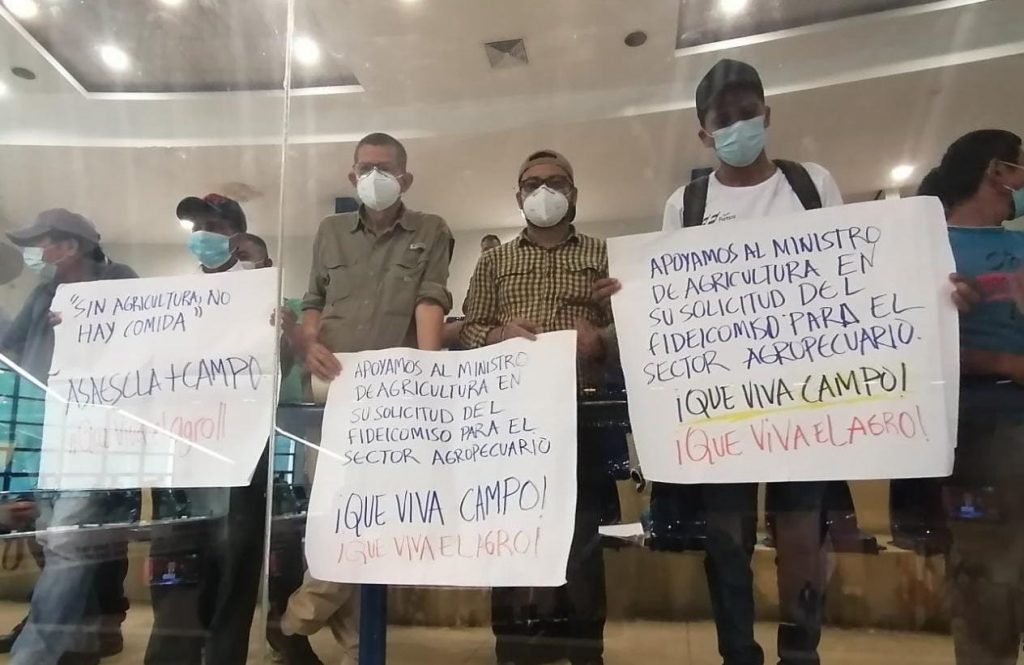 "SIN AGRICULTURA, NO
HAY COMIDA"
ASAESCLA + CAMPO
¡¡Que Viva el agro!!
APOYAMOS AL MINISTRO
DE AGRICULTURA EN
SU SOLICITUD DEL
FIDEICOMISO PARA EL
SECTOR AGROPECUARIO
¡QUE VIVA CAMPO!
¡QUE VIVA EL AGRO!
APOYAMOS AL MINISTRO
DE AGRICULTURA EN
SU SOLICITUD DEL
FIDEICOMISO PARA EL
SECTOR AGROPECUARIO.
¡QUE VIVA CAMPO!
¡QUE VIVA EL AGRO!